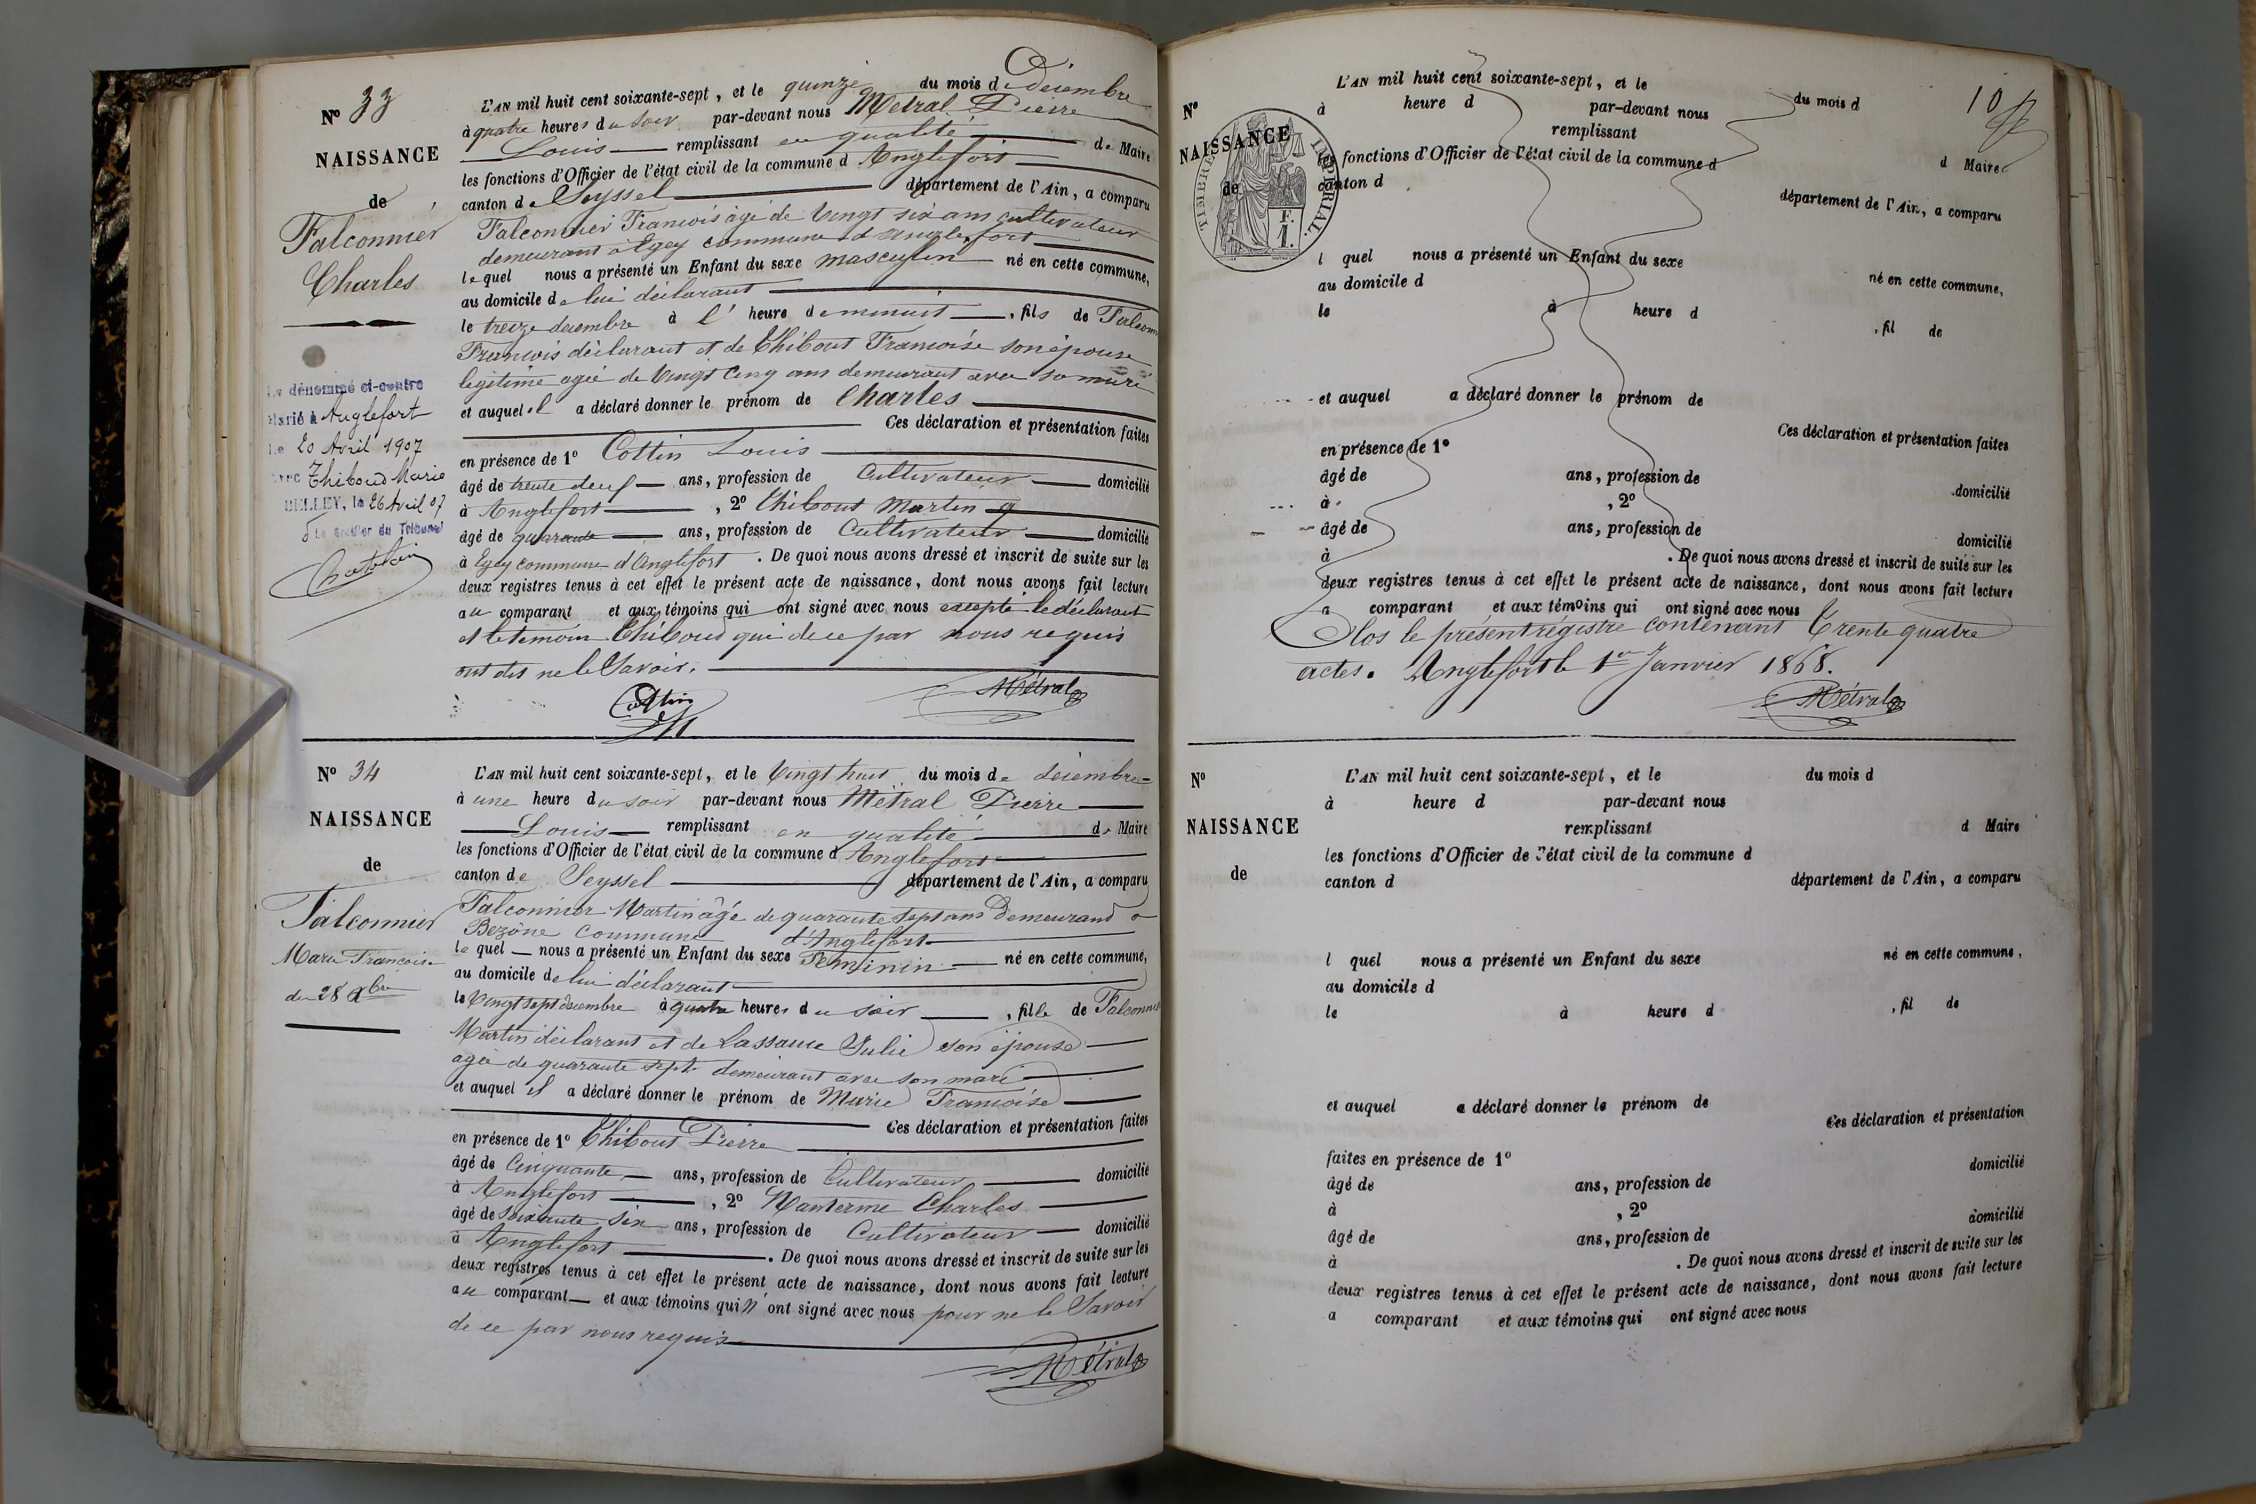 N° 33
NAISSANCE
de
Falconnier
Charles
Le dénommé ci-contre
Marié à Anglefort
le 20 Avril 1907
avec Thiboud Marie
BELLEY, le 26 Avril 07
Le Greffier du Tribunal
L'AN mil huit cent soixante-sept, et le quinze du mois de Décembre
à quatre heures du soir par-devant nous Métral Pierre
Louis remplissant en qualité de Maire
les fonctions d'Officier de l'état civil de la commune d Anglefort
canton de Seyssel département de l'Ain, a comparu
Falconnier François âgé de vingt six ans cultivateur
demeurant à Egey commune d'Anglefort
lequel nous a présenté un Enfant du sexe masculin né en cette commune,
au domicile de lui déclarant
le treize décembre à l' heure de minuit, fils de Falconn
François déclarant et de Thibout Françoise son épouse
légitime agée de vingt cinq ans demeurant avec so mari
et auquel il a déclaré donner le prénom de Charles
Ces déclaration et présentation faites
en présence de 1° Cottin Louis
âgé de trente deuf ans, profession de Cultivateur domicilié
à Anglefort, 2° Thibout Martin
âgé de quarante ans, profession de Cultivateur domicilié
à Egey commune d'Anglefort. De quoi nous avons dressé et inscrit de suite sur les
deux registres tenus à cet effet le présent acte de naissance, dont nous avons fait lecture
au comparant et aux témoins qui ont signé avec nous excepté le déclarant
et le temoin Thiboud qui de ce par nous requis
ont dit ne le Savoir.
Cottin Métral
N° 34
NAISSANCE
de
Falconnier
Marie Françoise
du 28 Xbre
L'AN mil huit cent soixante-sept, et le Vingt huit du mois de décembre
à une heure du soir par-devant nous Métral Pierre
Louis remplissant en qualité de Maire
les fonctions d'Officier de l'état civil de la commune d Anglefort
canton de Seyssel département de l'Ain, a comparu
Falconnier Martin âgé de quarante sept ans Demeurand a
Bezône commune d'Anglefort
lequel nous a présenté un Enfant du sexe Féminin né en cette commune,
au domicile de lui déclarant
le Vingt sept décembre à quatre heures du soir, fille de Falconnier
Martin déclarant et de Lassauce Julie son épouse
agée de quarante sept demeurant avec son mari
et auquel il a déclaré donner le prénom de Marie Françoise
Ces déclaration et présentation faites
en présence de 1° Thibout Pierre
âgé de Cinquante ans, profession de Cultivateur domicilié
à Anglefort, 2° Manterme Charles
âgé de soixante six ans, profession de Cultivateur domicilié
à Anglefort. De quoi nous avons dressé et inscrit de suite sur les
deux registres tenus à cet effet le présent acte de naissance, dont nous avons fait lecture
au comparant et aux témoins qui n'ont signé avec nous pour ne le Savoir
de ce par nous requis
Métral
10
N°
NAISSANCE
de
TIMBRE IMPERIAL.
F.
1.
L'AN mil huit cent soixante-sept, et le du mois d
à heure d par-devant nous
remplissant d Maire
les fonctions d'Officier de l'état civil de la commune d
canton d département de l'Ain, a comparu
l quel nous a présenté un Enfant du sexe né en cette commune,
au domicile d
le à heure d, fil de
et auquel a déclaré donner le prénom de
Ces déclaration et présentation faites
en présence de 1°
âgé de ans, profession de domicilié
à, 2°
âgé de ans, profession de domicilié
à. De quoi nous avons dressé et inscrit de suite sur les
deux registres tenus à cet effet le présent acte de naissance, dont nous avons fait lecture
a comparant et aux témoins qui ont signé avec nous
Clos le présent régistre contenant Trente quatre
actes. Anglefort le 1er Janvier 1868.
Métral
N°
NAISSANCE
de
L'AN mil huit cent soixante-sept, et le du mois d
à heure d par-devant nous
remplissant d Maire
les fonctions d'Officier de l'état civil de la commune d
canton d département de l'Ain, a comparu
l quel nous a présenté un Enfant du sexe né en cette commune,
au domicile d
le à heure d, fil de
et auquel a déclaré donner le prénom de
Ces déclaration et présentation
faites en présence de 1°
âgé de ans, profession de domicilié
à, 2°
âgé de ans, profession de domicilié
à. De quoi nous avons dressé et inscrit de suite sur les
deux registres tenus à cet effet le présent acte de naissance, dont nous avons fait lecture
a comparant et aux témoins qui ont signé avec nous